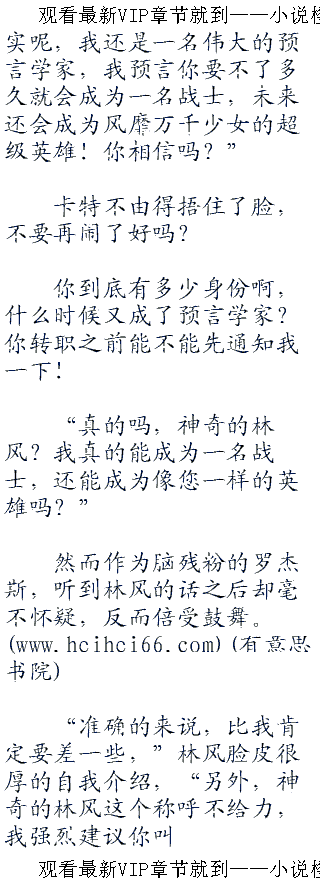 观看最新VIP章节就到——小说检
实呢，我还是一名伟大的预
言学家，我预言你要不了多
久就会成为一名战士，未来
还会成为风靡万千少女的超
级英雄！你相信吗？”
卡特不由得捂住了脸，
不要再闹了好吗？
你到底有多少身份啊，
什么时候又成了预言学家？
你转职之前能不能先通知我
一下！
“真的吗，神奇的林
风？我真的能成为一名战
士，还能成为像您一样的英
雄吗？”
然而作为脑残粉的罗杰
斯，听到林风的话之后却毫
不怀疑，反而倍受鼓舞。
(www.hcihci66.com)(有意思
书院)
“准确的来说，比我肯
定要差一些，”林风脸皮很
厚的自我介绍，“另外，神
奇的林风这个称呼不给力，
我强烈建议你叫
观看最新VIP章节就到——小说检